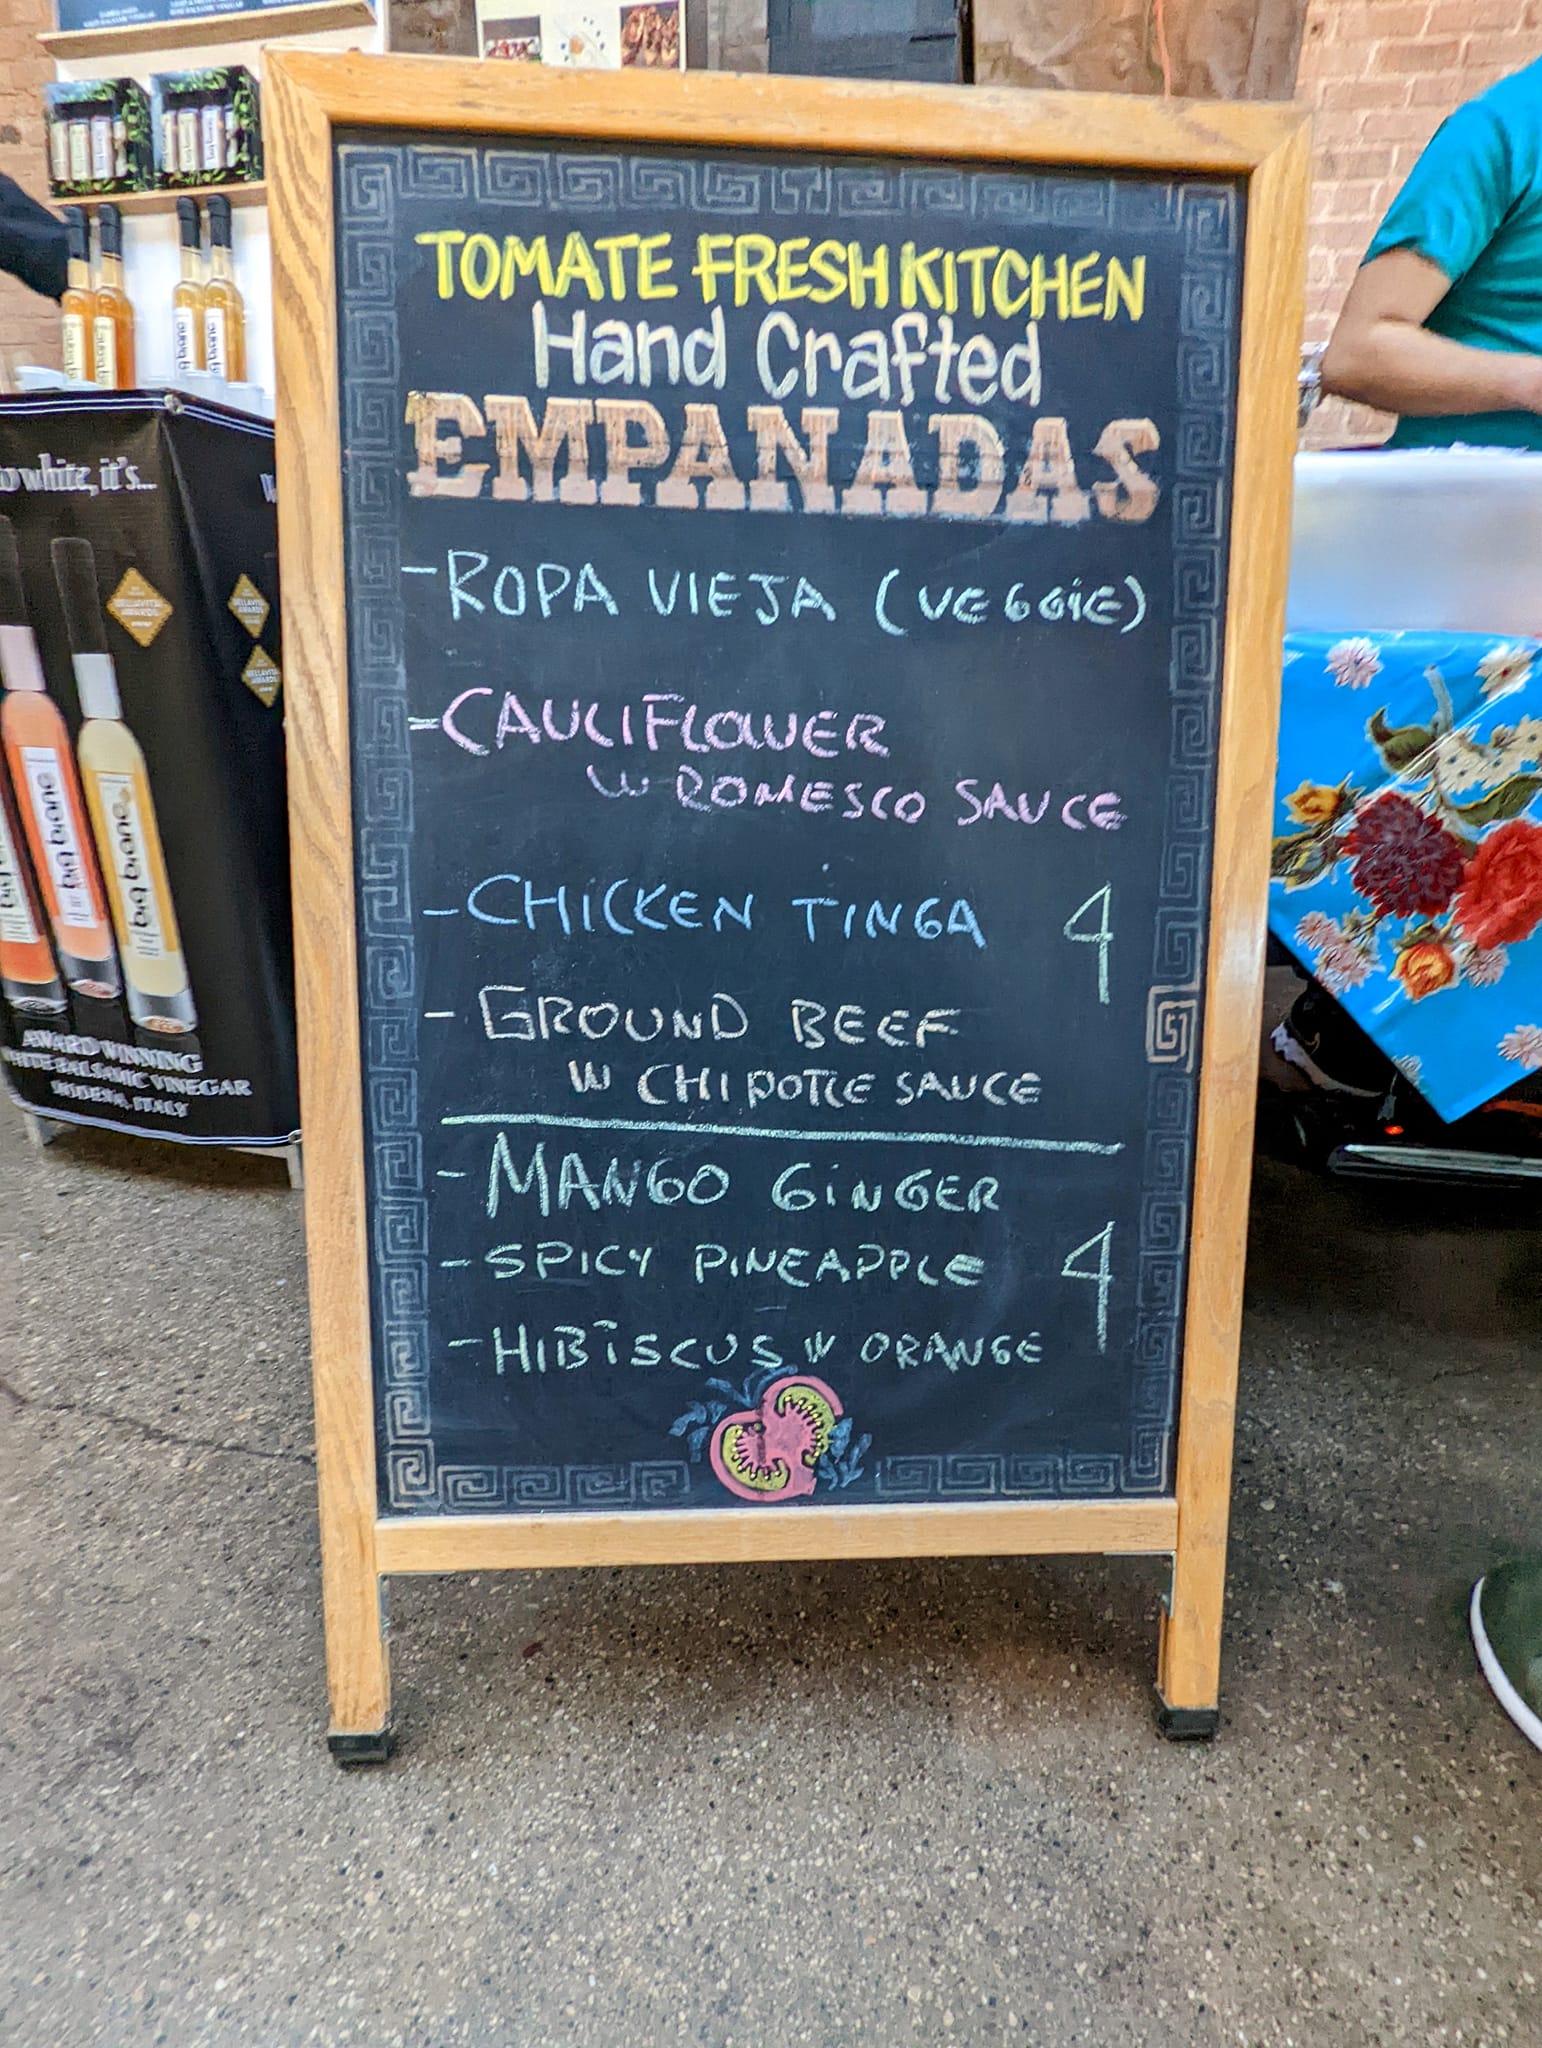 TOMATE FRESH KITCHEN
Hand Crafted
EMPANADAS
- ROPA VIEJA (VEGGiE)
= CAULIFLOWER
W ROMESCO SAUCE
- CHICKEN TINGA 4
- GROUND BEEF
W CHIPOTLE SAUCE
- MANGO GiNGER
- SPICY PINEAPPLE 4
- HIBiSCUS W ORANGE
to white, it's...
big bianco
big bianco
big bianco
big bianco
AWARD WINNING
WHITE BALSAMIC VINEGAR
MODENA, ITALY